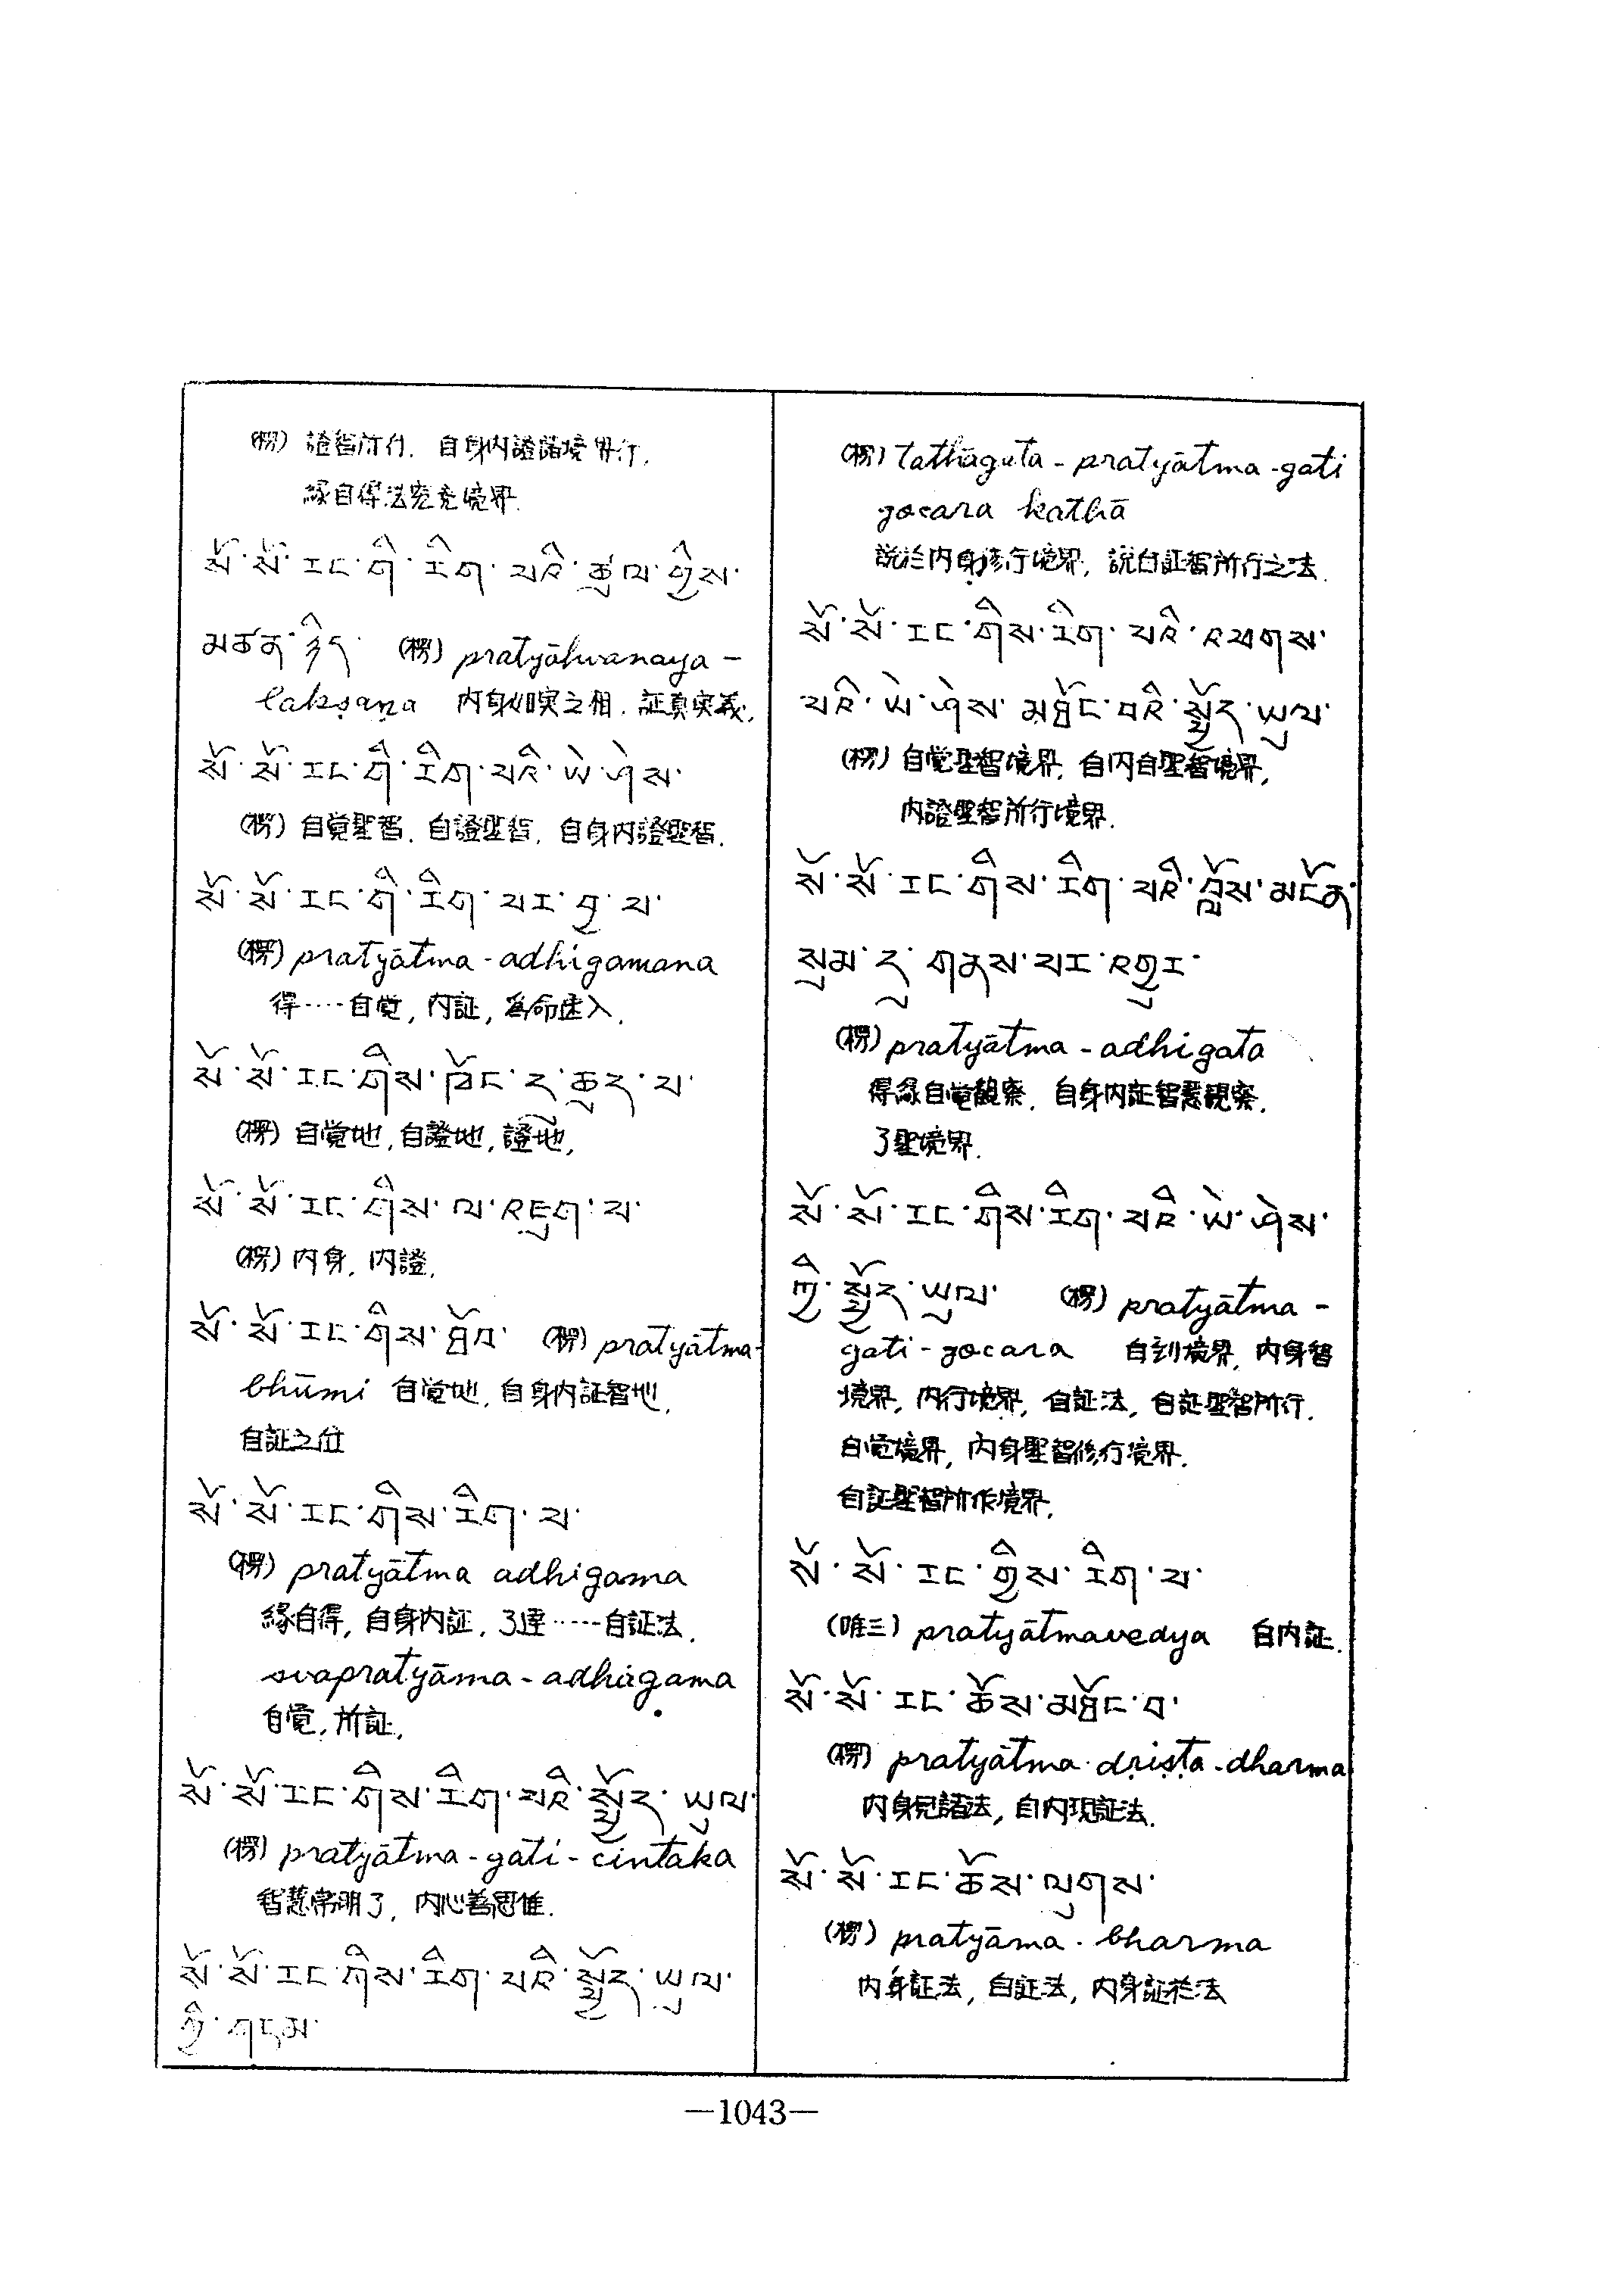 (楞) 證智所行. 自身內證諸境界行.
緣自得法究竟境界.
སོ་སོ་རང་གི་རིག་པའི་ཚུལ་གྱིས་
མཚན་ཉིད་ (楞) pratyātvanaya-
lakṣaṇa 内身如実之相. 証真実義.
སོ་སོ་རང་གི་རིག་པའི་ཡེ་ཤེས་
(楞) 自覚聖智. 自證聖智. 自身内證聖智.
སོ་སོ་རང་གི་རིག་པར་བྱ་བ་
(楞) pratyātma-adhigamana
得……自覚, 内証, 為命速入.
སོ་སོ་རང་གིས་ཁོང་དུ་ཆུད་པ་
(楞) 自覚地, 自證地, 證地,
སོ་སོ་རང་གིས་ལ་འཇུག་པ་
(楞) 内身, 内證,
སོ་སོ་རང་གིས་ཐོབ་ (楞) pratyātma-
bhūmi 自覚地, 自身内証智地,
自証之位
སོ་སོ་རང་གིས་རིག་པ་
(楞) pratyātma adhigama
緣自得, 自身内証, 了達……自証法.
svapratyāma-adhigama
自覚, 所証,
སོ་སོ་རང་གིས་རིག་པའི་སྤྱོད་ཡུལ་
(楞) pratyātma-gati-cintaka
智慧常明了, 内心善思惟.
སོ་སོ་རང་གིས་རིག་པའི་སྤྱོད་ཡུལ་
ཀྱི་གཏམ་
(楞) Tathāgata-pratyātma-gati
gocara kathā
説於内身修行境界, 説自証智所行之法.
སོ་སོ་རང་གིས་རིག་པའི་འཕགས་
པའི་ཡེ་ཤེས་མཐོང་བའི་སྤྱོད་ཡུལ་
(楞) 自覚聖智境界, 自内自聖智境界,
内證聖智所行境界.
སོ་སོ་རང་གིས་རིག་པའི་བློས་མངོན་
སུམ་དུ་གནས་པར་འགྱུར་
(楞) pratyātma-adhigata
得緣自覚観察. 自身内証智慧観察,
了聖境界.
སོ་སོ་རང་གིས་རིག་པའི་ཡེ་ཤེས་
ཀྱི་སྤྱོད་ཡུལ་ (楞) pratyātma-
gati-gocara 自到境界, 内身智
境界, 内行境界, 自証法, 自証聖智所行.
自覚境界, 内身聖智修行境界.
自証聖智所作境界,
སོ་སོ་རང་གྱིས་རིག་པ་
(唯三) pratyātmavedya 自内証.
སོ་སོ་རང་ཆོས་མཐོང་བ་
(楞) pratyātma·dṛiṣṭa-dharma
内身見諸法, 自内現証法.
སོ་སོ་རང་ཆོས་ལུགས་
(楞) pratyāma·bharma
内身証法, 自証法, 内身証於法
—1043—